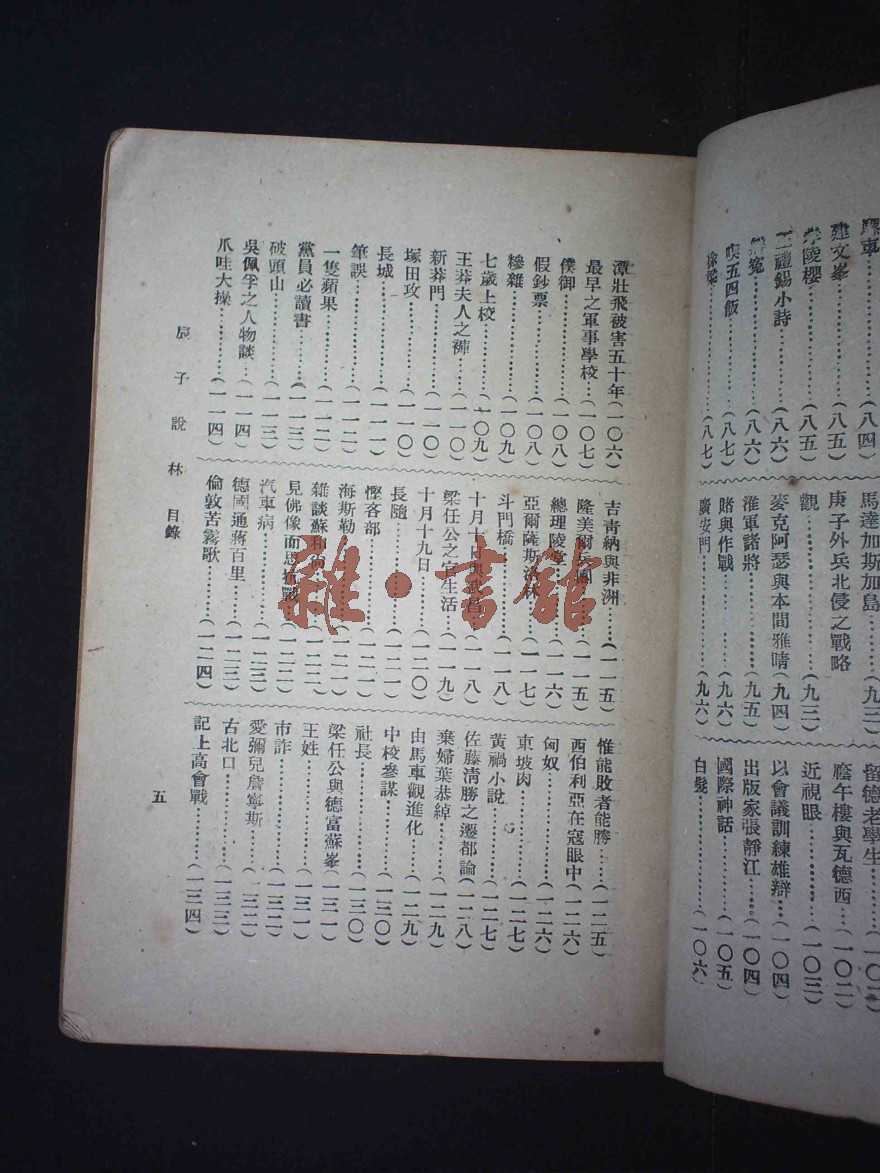 建文峯……(八五)
櫻……(八五)
小詩……(八六)
冤……(八六)
喫五四飯……(八七)
徐梁……(八七)
馬達加斯加島……(九三)
庚子外兵北侵之戰略
觀……(九三)
麥克阿瑟與本間雅晴(九四)
淮軍諸將……(九五)
賭與作戰……(九六)
廣安門……(九六)
留德老學生……(一〇二)
樓與瓦德西…(一〇二)
近視眼……(一〇三)
以會議訓練雄辯…(一〇四)
出版家張靜江……(一〇四)
國際神話……(一〇五)
白髮……(一〇六)
潭壯飛被害五十年(一〇六)
最早之軍事學校…(一〇七)
僕御……(一〇八)
假鈔票……(一〇八)
糝雜……(一〇九)
七歲上校……(一〇九)
王莽夫人之褲……(一一〇)
新莽門……(一一〇)
塚田攻……(一一〇)
長城……(一一一)
筆誤……(一一二)
一隻蘋果……(一一二)
黨員必讀書……(一一三)
破頭山……(一一三)
吳佩孚之人物談…(一一四)
爪哇大操……(一一四)
吉青納與非洲……(一一五)
隆美爾兵團……(一一五)
總理陵堂……(一一六)
亞爾薩斯洛林……(一一七)
斗門橋……(一一八)
十月十日與武昌…(一一八)
梁任公之官生活…(一一九)
十月十九日……(一二〇)
長隨……(一二一)
慳吝部……(一二一)
海斯勒……(一二一)
雜談蘇和……(一二二)
見佛像而思抗戰…(一二二)
汽車病……(一二三)
德國通蔣百里……(一二三)
倫敦苦霧歌……(一二四)
惟能敗者能勝……(一二五)
西伯利亞在寇眼中(一二六)
匈奴……(一二六)
東坡肉……(一二七)
黃禍小說……(一二七)
佐藤清勝之遷都論(一二八)
棄婦葉恭綽……(一二九)
由馬車觀進化……(一二九)
中校參謀……(一三〇)
社長……(一三〇)
梁任公與德富蘇峯(一三一)
王姓……(一三一)
市詐……(一三二)
愛彌兒詹寧斯……(一三二)
古北口……(一三三)
記上高會戰……(一三四)
辰子說林 目錄
五
雜·書館